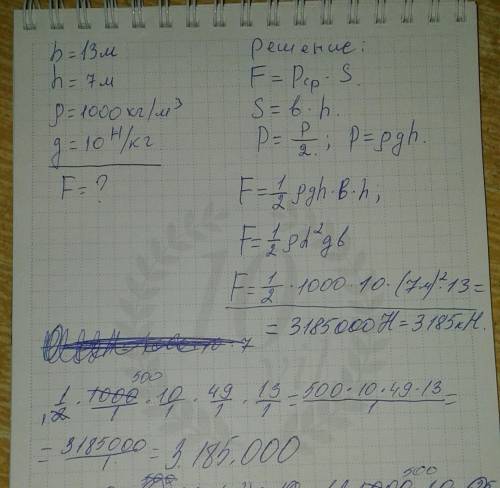 b = 13м
h = 7м
ρ = 1000 кг/м³
g = 10 Н/кг
F = ?
Решение:
F = Pср · S.
S = в · h.
P = P/2 ; P = ρgh.
F = 1/2 ρgh · в · h,
F = 1/2 ρh²gв
F = 1/2 · 1000 · 10 · (7м)² · 13 =
= 3185000 Н = 3185 кН.
1/2 · 1000/1 · 10/1 · 49/1 · 13/1 = 500·10·49·13/1 =
500
= 3185000/1 = 3.185.000